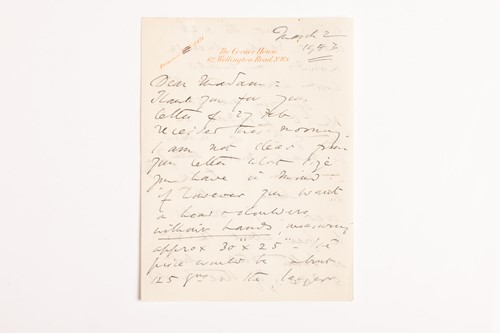 March 2
1943
The Corner House
62 Wellington Road N.W.8
Dear Madam :-
Thank you for your
letter of 27 Feb
received this morning.
I am not clear from
your letter what size
you have in mind -
if however you want
a head & shoulders
without hands, measuring
approx 30" x 25" - the
price would be about
125 gns - the larger